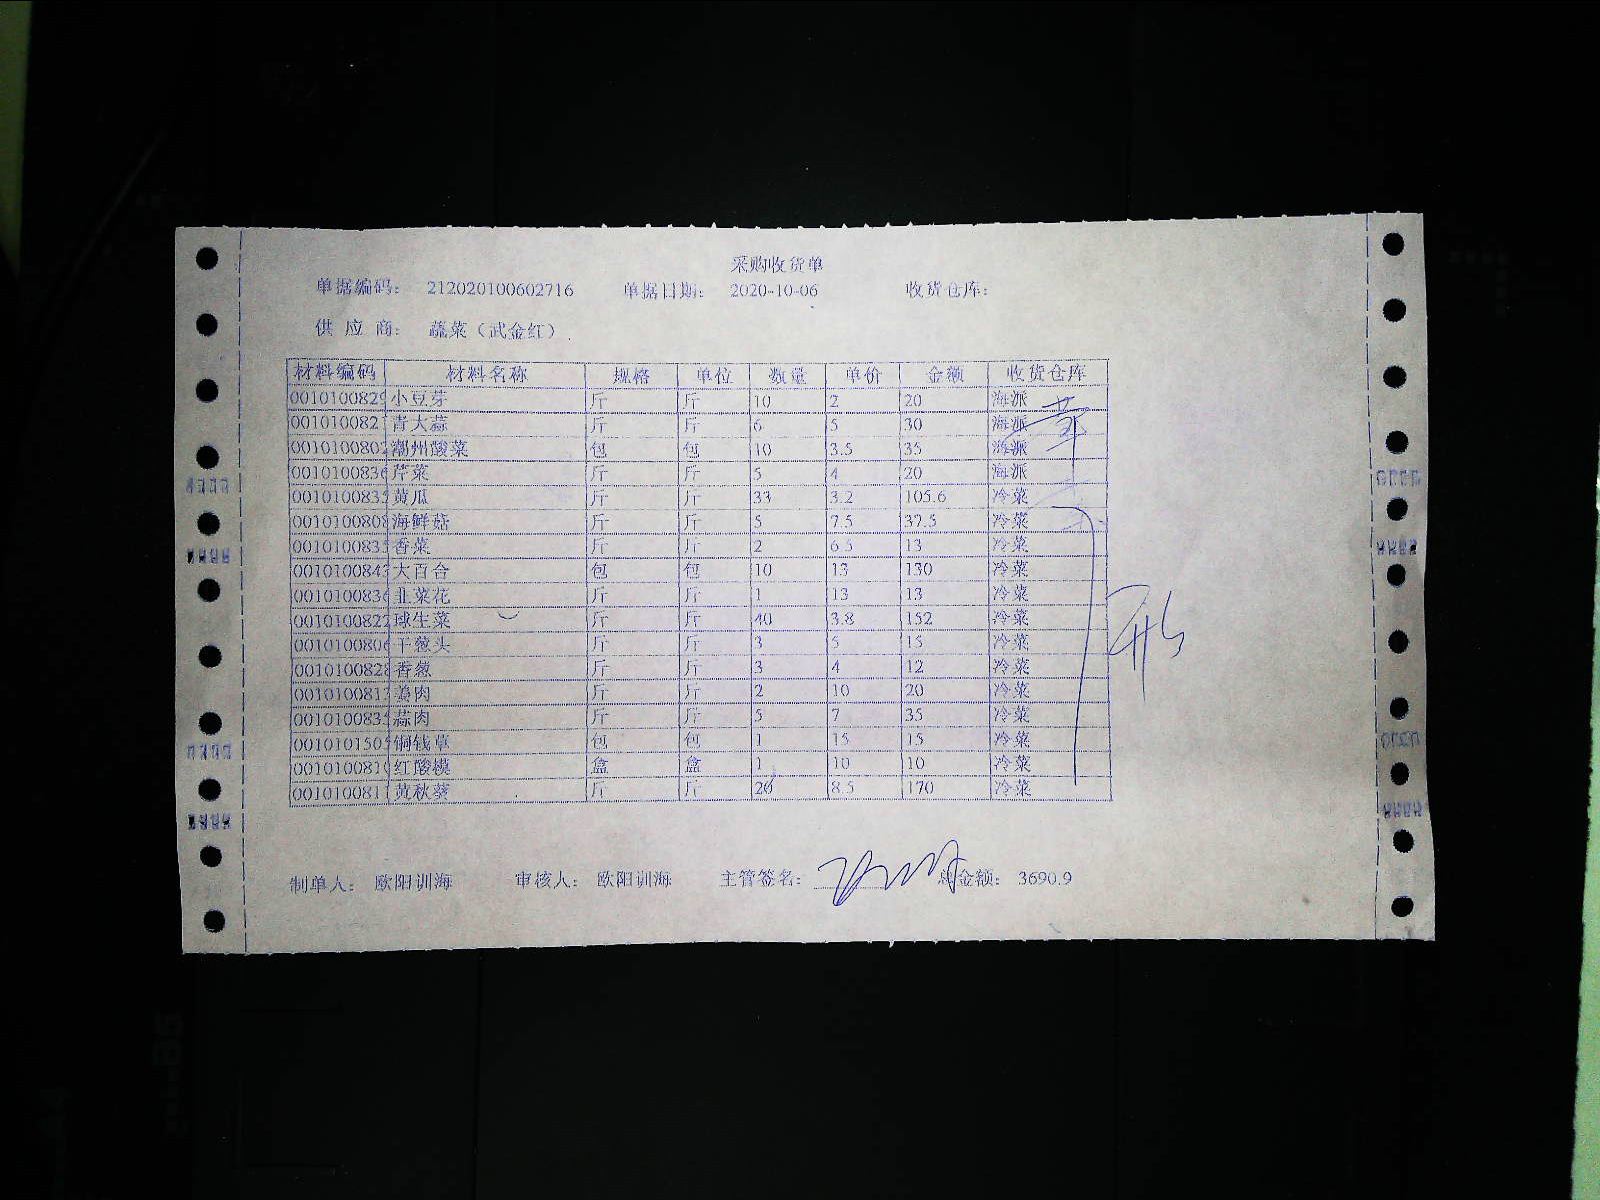 采购收货单
单据编码: 212020100602716 单据日期: 2020-10-06 收货仓库:
供 应 商: 蔬菜（武金红）
材料编码 材料名称 规格 单位 数量 单价 金额 收货仓库
0010100829 小豆芽 斤 斤 10 2 20 海派
001010082 青大蒜 斤 斤 6 5 30 海派
001010080 潮州酸菜 包 包 10 3.5 35 海派
001010083 芹菜 斤 斤 5 4 20 海派
001010083 黄瓜 斤 斤 33 3.2 105.6 冷菜
001010080 海鲜菇 斤 斤 5 7.5 37.5 冷菜
001010083 香菜 斤 斤 2 6.5 13 冷菜
001010084 大百合 包 包 10 13 130 冷菜
001010083 韭菜花 斤 斤 1 13 13 冷菜
001010082 球生菜 斤 斤 40 3.8 152 冷菜
001010080 干葱头 斤 斤 3 5 15 冷菜
001010082 香葱 斤 斤 3 4 12 冷菜
001010081 姜肉 斤 斤 2 10 20 冷菜
001010083 蒜肉 斤 斤 5 7 35 冷菜
001010150 铜钱草 包 包 1 15 15 冷菜
001010081 红酸模 盒 盒 1 10 10 冷菜
001010081 黄秋葵 斤 斤 20 8.5 170 冷菜
制单人: 欧阳训海 审核人: 欧阳训海 主管签名: 总金额: 3690.9